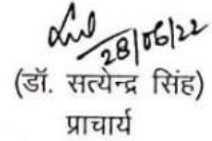 28/06/22
(डॉ. सत्येन्द्र सिंह)
प्राचार्य